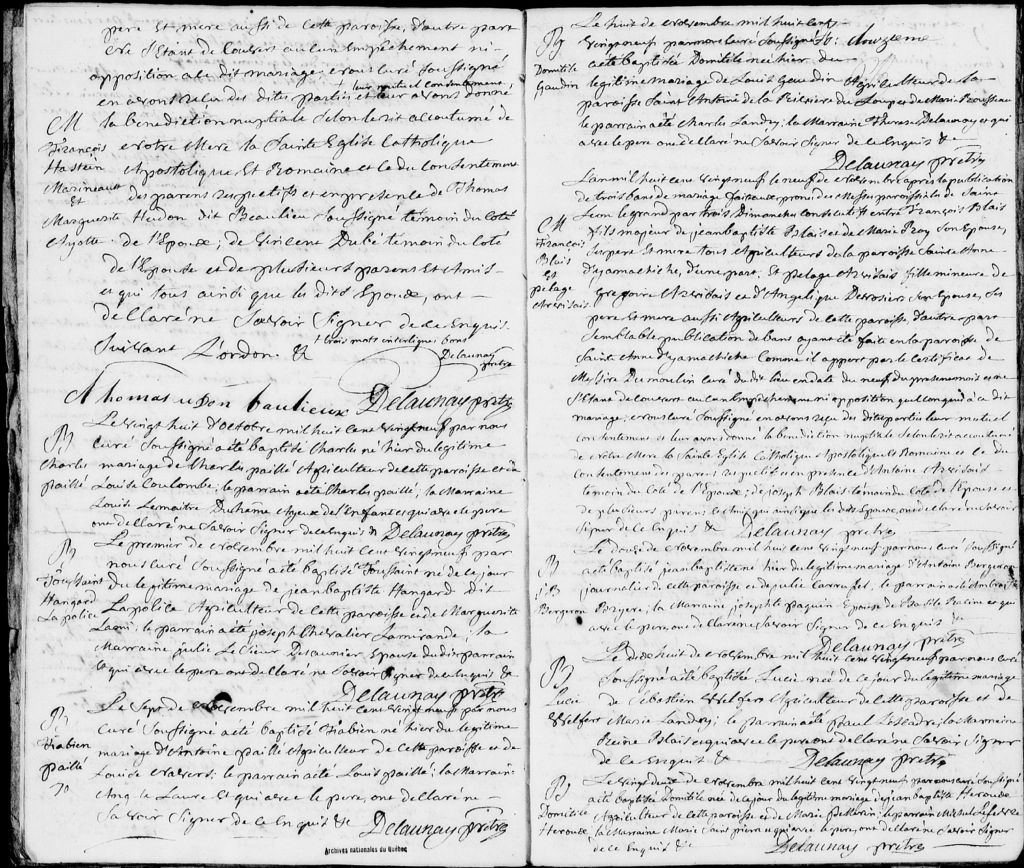 père et mère aussi de cette paroisse, d'autre part
ne s'étant découvert aucun empêchement ni
opposition au dit mariage, nous curé soussigné
leur mutuel consentement
en avons reçu des dites parties et leur avons donné
M la bénédiction nuptiale selon le rit accoutumé de
François notre Mère la Sainte Eglise Catholique
Marineau Apostolique Et Romaine et le du consentement
Et des parens respectifs et en présence de Thomas
Marguerite Hudon dit Beaulieu soussigné témoin du Coté
Ayotte de l'Epoux, de Vincent Dubé témoin du Coté
de l'Epouse et de plusieurs parens et amis
et qui tous ainsi que les dits Epoux, ont
déclaré ne Savoir Signer de ce Enquis
suivant L'ordon. &
trois mots interlignes bons
Delaunay
prêtre
Thomas udon baulieux Delaunay prêtre
B Le vingt huit d'octobre mil huit cent vingt neuf par nous
curé Soussigné a été baptisé Charles né hier du légitime
Charles mariage de Charles paillé Agriculteur de cette paroisse et de
paillé Louise Coulombe; le parrain a été Charles paillé; la Marraine
Louise Lemaitre Duheme Ayeux de l'Enfant et qui avec le père
ont déclaré ne Savoir Signer de ce Enquis & Delaunay prêtre
B Le premier de Novembre mil huit cent vingt neuf par
nous curé Soussigné a été baptisé Toussaint né de ce jour
Toussaint du légitime mariage de jean baptiste Hangard dit
Hangard Lapolice Agriculteur de cette paroisse et de Marguerite
Lapolice Lami; le parrain a été joseph Chevalier Lamirande; la
Marraine julie Le Sieur Desaunier Epouse du dit parrain
et qui avec le père ont déclaré ne Savoir Signer de ce Enquis &
Delaunay prêtre
B Le Sept de Novembre mil huit cent vingt neuf par nous
curé Soussigné a été baptisé Fabien né hier du légitime
Fabien mariage d'Antoine paillé Agriculteur de cette paroisse et de
paillé Louise; le parrain a été Louis paillé; la Marraine
70 Ang. le Laure et qui avec le père, ont déclaré ne
Savoir Signer de ce Enquis & Delaunay prêtre
Archives nationales du Québec
Le huit de Novembre mil huit cent
B vingt neuf par nous curé Soussigné
Domitile a été baptisée Domitile née hier du
Gaudin légitime mariage de Louis Gaudin Agriculteur de la
paroisse Saint Antoine de la Rivière du Loup et de Marie Rousseau
le parrain a été Charles Landry; la Marraine Therese Delaunay et qui
avec le père ont déclaré ne Savoir Signer de ce Enquis &
Delaunay prêtre
L'an mil huit cent vingt neuf le neuf de Novembre après la publication
de trois bans de mariage faite au prone des Messes paroissiales de Saint
M Leon le grand par trois Dimanches consécutifs entre François Blais
François fils majeur de jean baptiste Blais et de Marie Roy Son Epouse,
Blais ses père et mère tous Agriculteurs de la paroisse Sainte Anne
Et d'yamachiche, d'une part, Et pelagie fille mineure de
pelagie grégoire et d'Angelique Derosier Son Epouse, Ses
père et mère aussi Agriculteurs de cette paroisse, d'autre part
Semblable publication de bans ayant été faite en la paroisse de
Sainte Anne d'yamachiche Comme il appert par le certificat de
Messire Dumoulin curé du dit lieu en date du neuf du présent mois et ne
s'étant découvert aucun Empêchement ni opposition quelconque à ce dit
mariage; nous curé Soussigné en avons reçu des dites parties leur mutuel
consentement et leur avons donné la bénédiction nuptiale selon le rit accoutumé
de Notre Mère la Sainte Eglise Catholique Apostolique & Romaine et le du
consentement des parens respectifs en présence d'Antoine
témoin du Coté de l'Epouse; de joseph Blais témoin du Coté de l'Epoux et
de plusieurs parens et amis qui ainsi que les dits Epoux, ont déclaré ne Savoir
Signer de ce Enquis & Delaunay prêtre
B Le douze de Novembre mil huit cent vingt neuf par nous curé Soussigné
a été baptisé jean baptiste né hier du légitime mariage d'Antoine Bergeron
J. B. journalier de cette paroisse et de julie Carrufel; le parrain a été Ambroise
Bergeron; la Marraine josephte paquin Epouse de Basile et qui
avec le père ont déclaré ne Savoir Signer de ce Enquis &
Delaunay prêtre
B Le dix huit de Novembre mil huit cent vingt neuf par nous curé
Soussigné a été baptisée Lucie née de ce jour du légitime mariage
Lucie de Sébastien Agriculteur de cette paroisse et de
Marie Landry; le parrain a été paul; la Marraine
Reine Blais et qui avec le père ont déclaré ne Savoir Signer
de ce Enquis & Delaunay prêtre
B Le vingt deux de Novembre mil huit cent vingt neuf par nous curé Soussigné
a été baptisée Domitile née de ce jour du légitime mariage de jean baptiste Heroux
Domitile Agriculteur de cette paroisse et de Marie; le parrain Michel
Heroux la Marraine Marie Saint pierre et qui avec le père, ont déclaré ne Savoir Signer
de ce Enquis & Delaunay prêtre